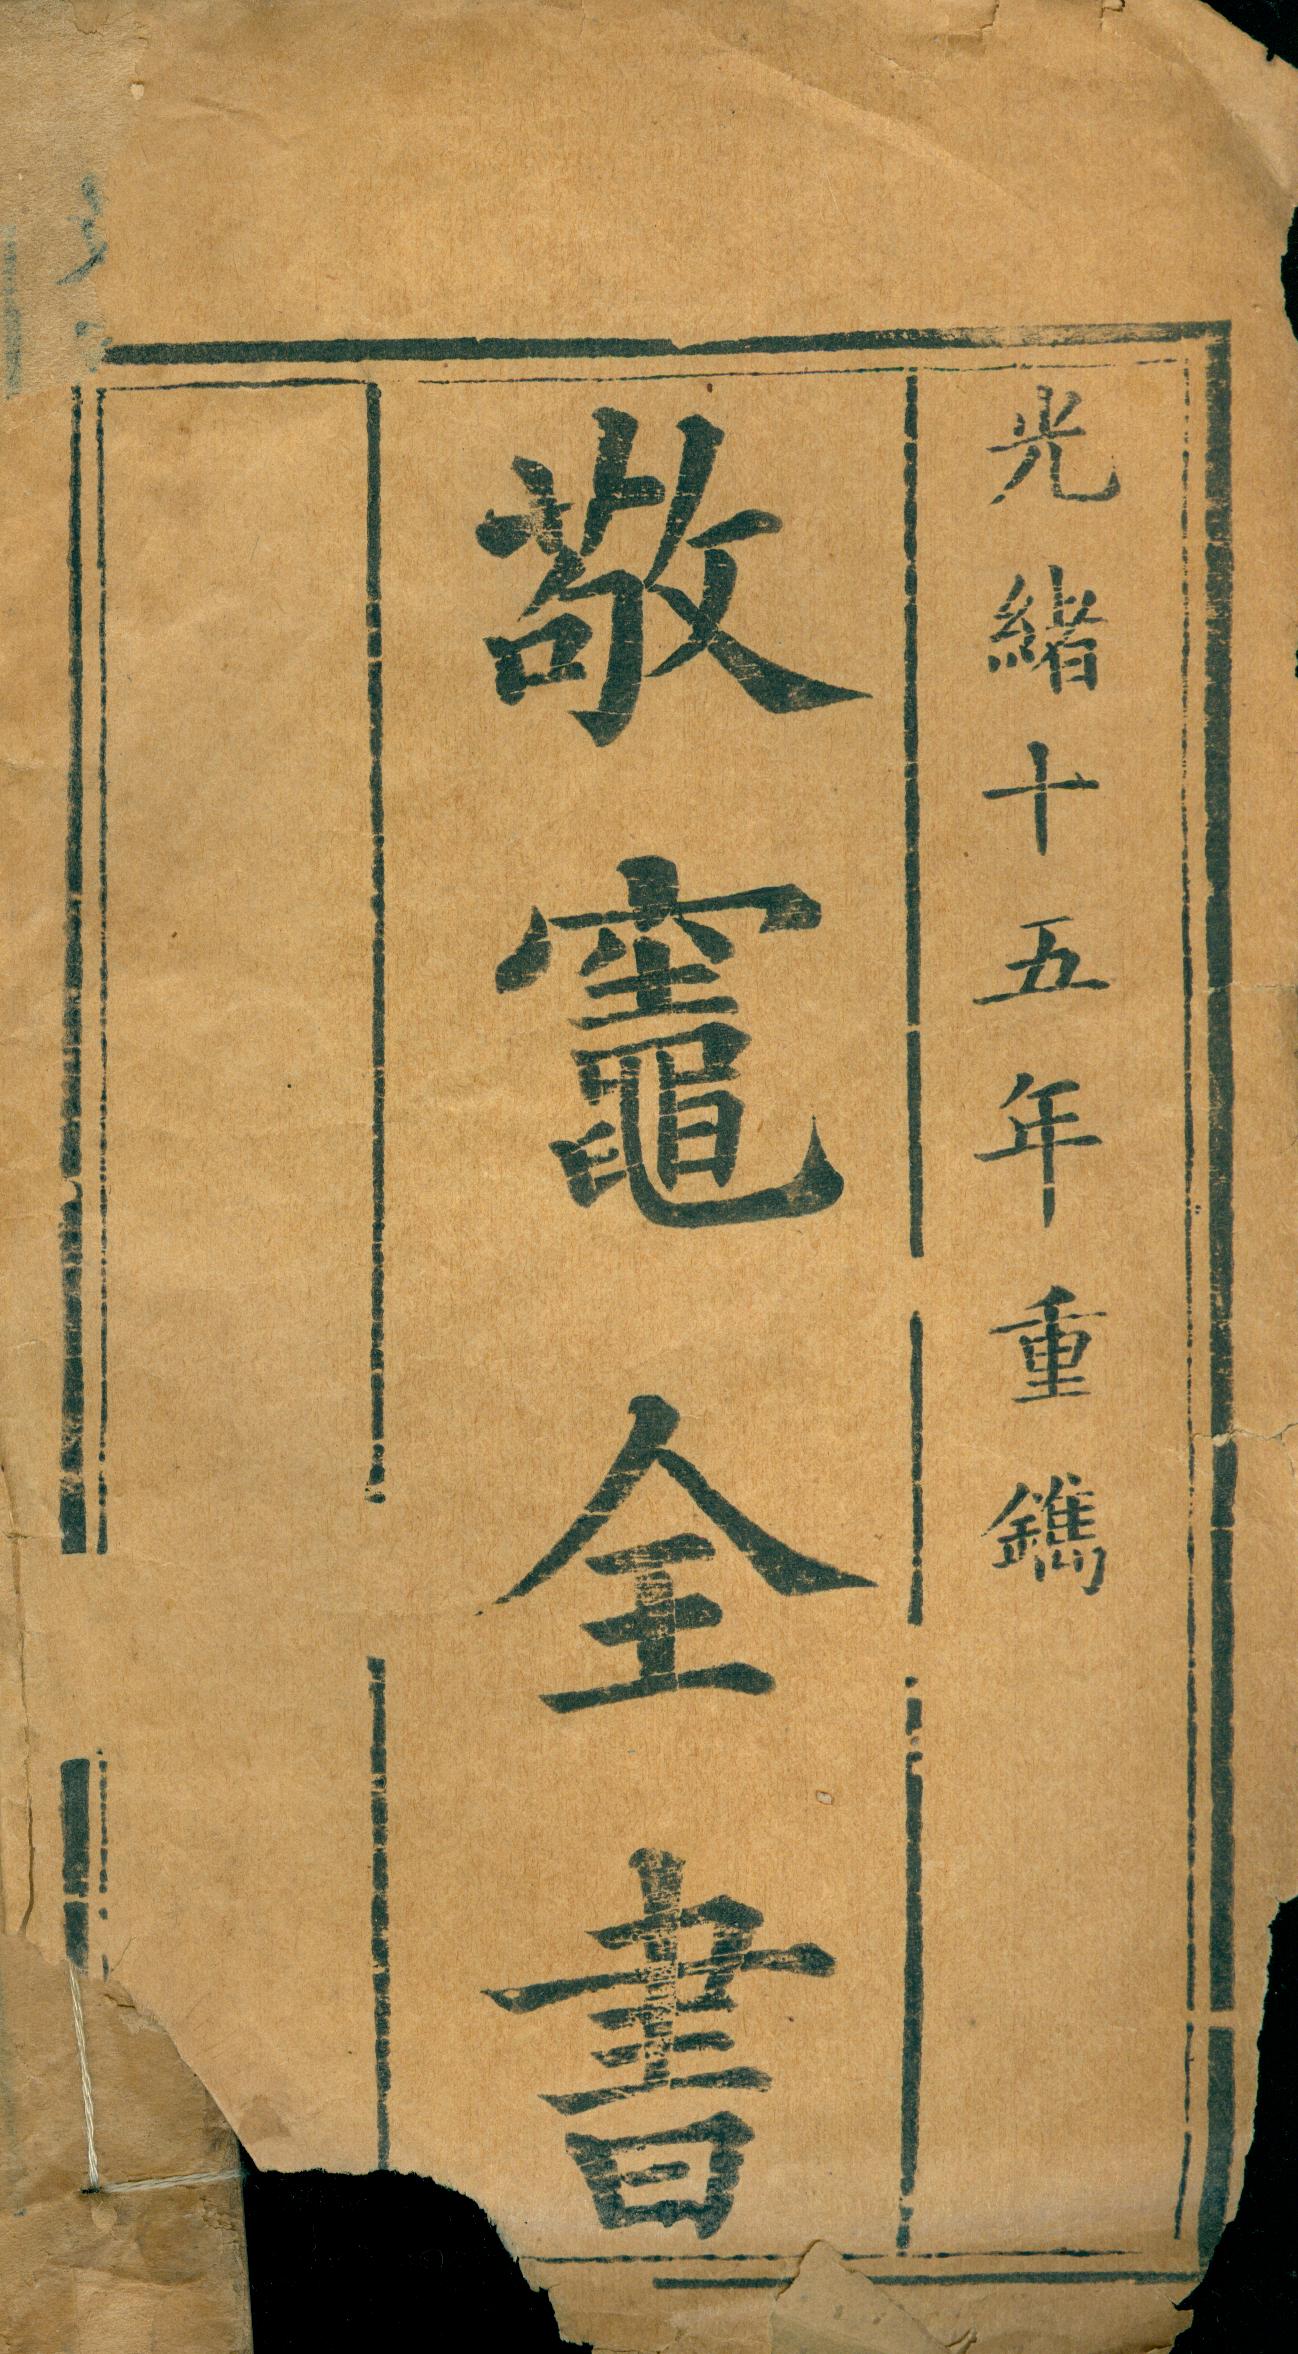 光緒十五年重鐫
敬竈全書